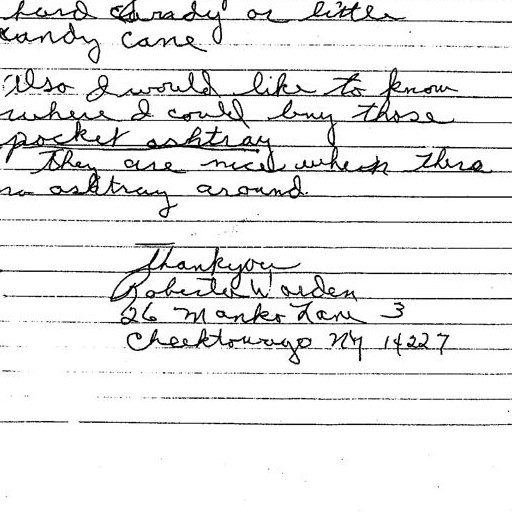 hard Candy or little
candy cane
Also I would like to know
where I could buy those
pocket ashtray
They are nice when thers
no ashtray around.
Thankyou
Roberta Warden
26 Manko Lane 3
Cheektowago NY 14227